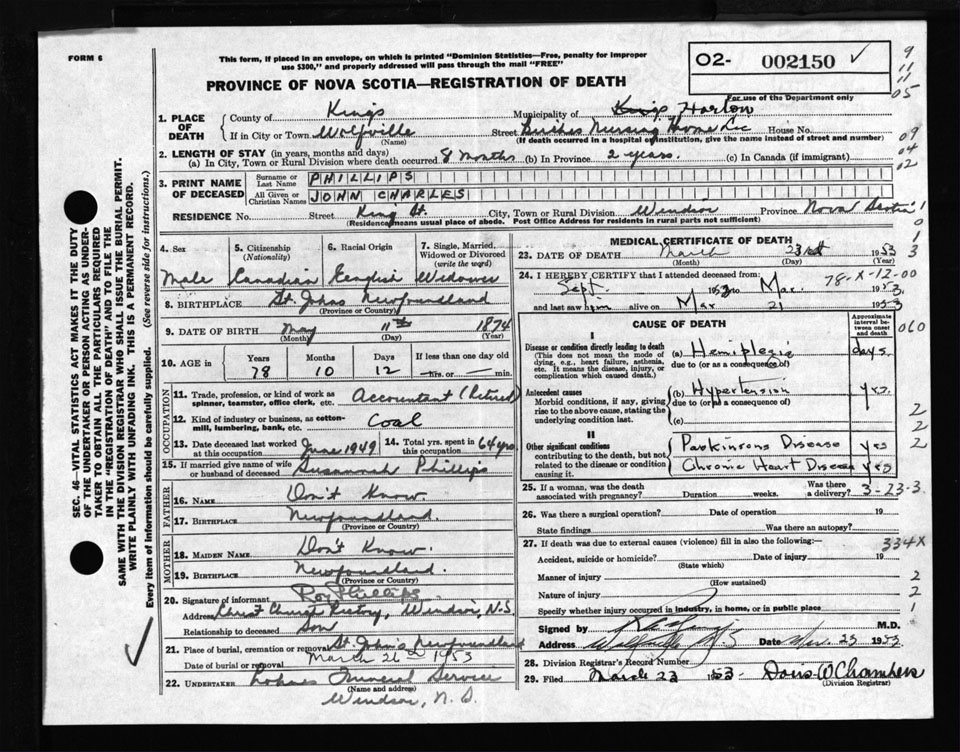 FORM 6
This form, if placed in an envelope, on which is printed "Dominion Statistics—Free, penalty for improper
use $300," and properly addressed will pass through the mail "FREE"
02- 002150 ✓
For use of the Department only
9
11
11
05
09
04
02
PROVINCE OF NOVA SCOTIA—REGISTRATION OF DEATH
1. PLACE OF DEATH
County of Kings Municipality of Kings Horton
If in City or Town Wolfville (Name) Street Nursing Home House No.
(If death occurred in a hospital or institution, give the name instead of street and number)
2. LENGTH OF STAY (in years, months and days)
(a) In City, Town or Rural Division where death occurred 8 months (b) In Province 2 years. (c) In Canada (if immigrant)
3. PRINT NAME OF DECEASED
Surname or Last Name PHILLIPS
All Given or Christian Names JOHN CHARLES
RESIDENCE No. Street King St. City, Town or Rural Division Windsor Province Nova Scotia
(Residence means usual place of abode. Post Office Address for residents in rural parts not sufficient)
4. Sex Male
5. Citizenship (Nationality) Canadian
6. Racial Origin English
7. Single, Married, Widowed or Divorced (write the word) Widower
8. BIRTHPLACE St. Johns Newfoundland
(Province or Country)
9. DATE OF BIRTH May 11th 1874
(Month) (Day) (Year)
10. AGE in Years 78 Months 10 Days 12 If less than one day old —hrs. or— min.
OCCUPATION
11. Trade, profession, or kind of work as spinner, teamster, office clerk, etc. Accountant (Retired)
12. Kind of industry or business, as cotton-mill, lumbering, bank, etc. Coal
13. Date deceased last worked at this occupation June 1949
14. Total yrs. spent in this occupation 64 yrs
15. If married give name of wife or husband of deceased Susannah Phillips
FATHER
16. NAME Don't Know
17. BIRTHPLACE Newfoundland.
(Province or Country)
MOTHER
18. MAIDEN NAME Don't Know.
19. BIRTHPLACE Newfoundland.
(Province or Country)
20. Signature of informant Roy Phillips
Address Christ Church Rectory, Windsor, N.S.
Relationship to deceased Son
21. Place of burial, cremation or removal St. John's Newfoundland
Date of burial or removal March 26 1953
22. UNDERTAKER Funeral Service
(Name and address)
Windsor, N.S.
MEDICAL CERTIFICATE OF DEATH
23. DATE OF DEATH March 23 1953
(Month) (Day) (Year)
78-X-12-00
24. I HEREBY CERTIFY that I attended deceased from:
Sept. to Mar. 1953.
and last saw him alive on Mar 21 1953
CAUSE OF DEATH
Approximate interval between onset and death
060
I
Disease or condition directly leading to death
(This does not mean the mode of dying, e.g., heart failure, asthenia, etc. It means the disease, injury, or complication which caused death.)
(a) Hemiplegia days.
due to (or as a consequence of)
Antecedent causes
Morbid conditions, if any, giving rise to the above cause, stating the underlying condition last.
(b) Hypertension yrs.
due to (or as a consequence of)
(c)
2
2
2
II
Other significant conditions
contributing to the death, but not related to the disease or condition causing it.
Parkinsons Disease yrs
Chronic Heart Disease yrs
25. If a woman, was the death associated with pregnancy? Duration weeks. Was there a delivery?
3-23-3
26. Was there a surgical operation? Date of operation 19
State findings Was there an autopsy?
27. If death was due to external causes (violence) fill in also the following:—
334X
Accident, suicide or homicide? Date of injury 19
(State which)
Manner of injury 2
(How sustained)
Nature of injury 2
Specify whether injury occurred in industry, in home, or in public place 1
Signed by M.D.
Address Wolfville N.S Date Mar. 23 1953
28. Division Registrar's Record Number
29. Filed March 23 1953 Doris W Chambers
(Division Registrar)
SEC. 46—VITAL STATISTICS ACT MAKES IT THE DUTY
OF THE UNDERTAKER OR PERSON ACTING AS UNDER-
TAKER TO OBTAIN ALL THE PARTICULARS REQUIRED
IN THE "REGISTRATION OF DEATH" AND TO FILE THE
SAME WITH THE DIVISION REGISTRAR WHO SHALL ISSUE THE BURIAL PERMIT.
WRITE PLAINLY WITH UNFADING INK. THIS IS A PERMANENT RECORD.
Every item of Information should be carefully supplied. (See reverse side for instructions.)